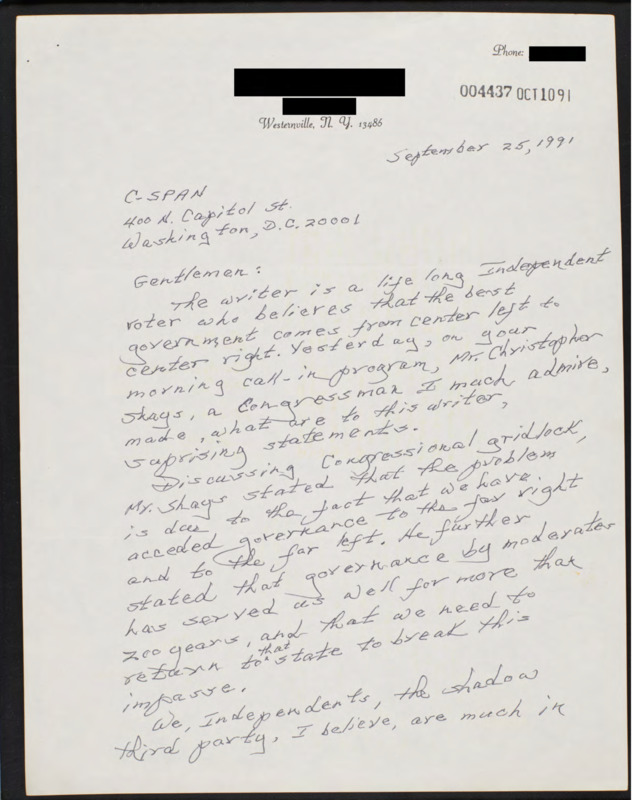 Phone:
004437 OCT1091
Westernville, N. Y. 13486
September 25, 1991
C-SPAN
400 N. Capitol St.
Washington, D.C. 20001
Gentlemen:
The writer is a life long Independent
voter who believes that the best
government comes from center left to
center right. Yesterday, on your
morning call-in program, Mr. Christopher
Shays, a Congressman I much admire,
made, what are to this writer,
suprising statements.
Discussing Congressional gridlock,
Mr. Shays stated that the problem
is due to the fact that we have
acceded governance to the far right
and to the far left. He further
stated that governance by moderates
has served us well for more than
200 years, and that we need to
return to that state to break this
impasse.
We, Independents, the shadow
third party, I believe, are much in